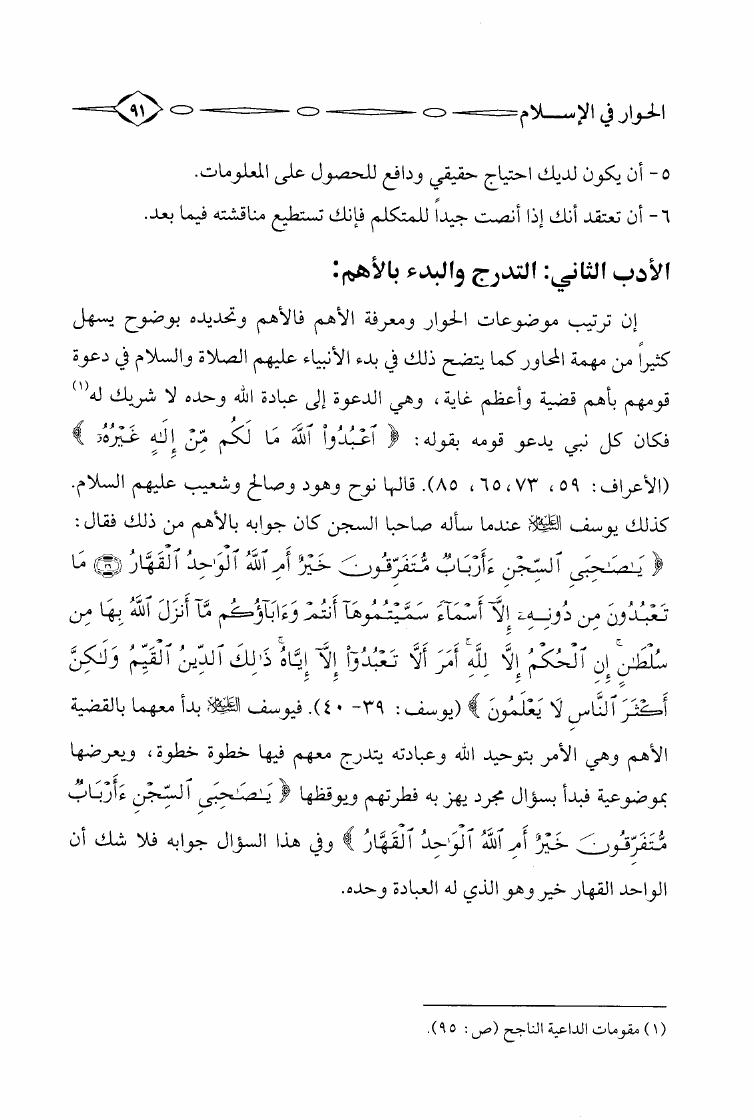 الحوار في الإســـلام ٩١
٥- أن يكون لديك احتياج حقيقي ودافع للحصول على المعلومات.
٦- أن تعتقد أنك إذا أنصت جيداً للمتكلم فإنك تستطيع مناقشته فيما بعد.
الأدب الثاني: التدرج والبدء بالأهم:
إن ترتيب موضوعات الحوار ومعرفة الأهم فالأهم وتحديده بوضوح يسهل
كثيراً من مهمة المحاور كما يتضح ذلك في بدء الأنبياء عليهم الصلاة والسلام في دعوة
قومهم بأهم قضية وأعظم غاية، وهي الدعوة إلى عبادة الله وحده لا شريك له(١)
فكان كل نبي يدعو قومه بقوله: ﴿ ٱعْبُدُوا۟ ٱللَّهَ مَا لَكُم مِّنْ إِلَـٰهٍ غَيْرُهُۥ ﴾
(الأعراف: ٥٩، ٦٥،٧٣، ٨٥). قالها نوح وهود وصالح وشعيب عليهم السلام.
كذلك يوسف عليه السلام عندما سأله صاحبا السجن كان جوابه بالأهم من ذلك فقال:
﴿ يَـٰصَـٰحِبَىِ ٱلسِّجْنِ ءَأَرْبَابٌ مُّتَفَرِّقُونَ خَيْرٌ أَمِ ٱللَّهُ ٱلْوَٰحِدُ ٱلْقَهَّارُ ۝٣٩ مَا
تَعْبُدُونَ مِن دُونِهِۦٓ إِلَّآ أَسْمَآءً سَمَّيْتُمُوهَآ أَنتُمْ وَءَابَآؤُكُم مَّآ أَنزَلَ ٱللَّهُ بِهَا مِن
سُلْطَـٰنٍ ۚ إِنِ ٱلْحُكْمُ إِلَّا لِلَّهِ ۚ أَمَرَ أَلَّا تَعْبُدُوٓا۟ إِلَّآ إِيَّاهُ ۚ ذَٰلِكَ ٱلدِّينُ ٱلْقَيِّمُ وَلَـٰكِنَّ
أَكْثَرَ ٱلنَّاسِ لَا يَعْلَمُونَ ﴾ (يوسف: ٣٩- ٤٠). فيوسف عليه السلام بدأ معهما بالقضية
الأهم وهي الأمر بتوحيد الله وعبادته يتدرج معهم فيها خطوة خطوة، ويعرضها
بموضوعية فبدأ بسؤال مجرد يهز به فطرتهم ويوقظها ﴿ يَـٰصَـٰحِبَىِ ٱلسِّجْنِ ءَأَرْبَابٌ
مُّتَفَرِّقُونَ خَيْرٌ أَمِ ٱللَّهُ ٱلْوَٰحِدُ ٱلْقَهَّارُ ﴾ وفي هذا السؤال جوابه فلا شك أن
الواحد القهار خير وهو الذي له العبادة وحده.
(١) مقومات الداعية الناجح (ص: ٩٥).